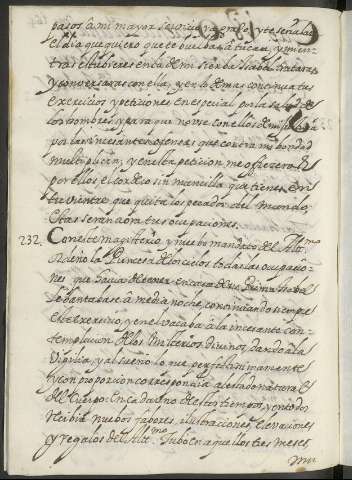 pasos à mi mayor servicio y agrado, y te señalaré
el dia que quiero que te buelbas à tu casa, y mien-
tras estubieres en la de mi sierba Isabel, trataras,
y conversaras con ella; y en lo demas continua tus
exercicios y peticiones en especial por la salud de
los hombres, y para que no use con ellos de mi justicia
por las incesantes ofensas que contra mi bondad
multiplican; y en esta peticion me ofreceras
por ellos el cordero sin mancilla que tienes en
tu vientre que quita los pecados del mundo.
Estas seran aora tus ocupaciones.
232. Con este magisterio y nuebo mandato del Alt.mo
ordeno la Princesa de los cielos todas las ocupacio-
nes que havia de tener en casa de su Prima Isabel
Lebantabase à media noche, continuando siempre
este exercicio, y en el vacaba à la incesante con-
templacion de los misterios divinos, dando à la
Vigilia, y al sueño lo que perfectissimamente
y con proporcion correspondia al estado natural
del cuerpo. En cada uno de estos tiempos, y en todos
recibia nuebos fabores, ilustraciones, elevaciones
y regalos del Alt.mo Tubo en aquellos tres meses
mu